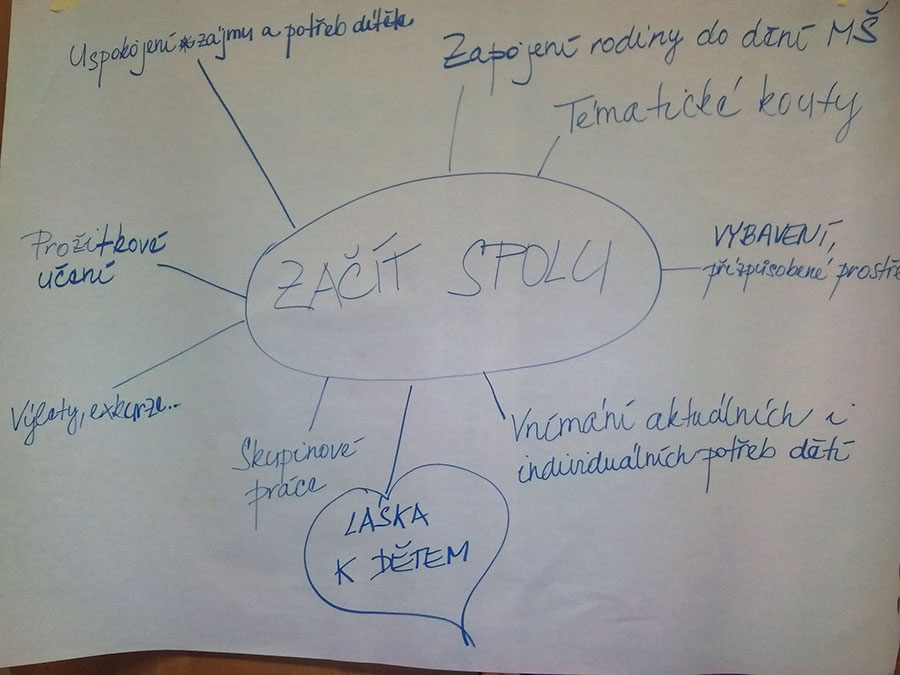 Uspokojení zájmu a potřeb dítěte
Zapojení rodiny do dění MŠ
Tématické kouty
Prožitkové
učení
ZAČÍT SPOLU
VYBAVENÍ,
přizpůsobené prostře
Výlety, exkurze...
Skupinové
práce
Vnímání aktuálních i
individuálních potřeb dětí
LÁSKA
K DĚTEM